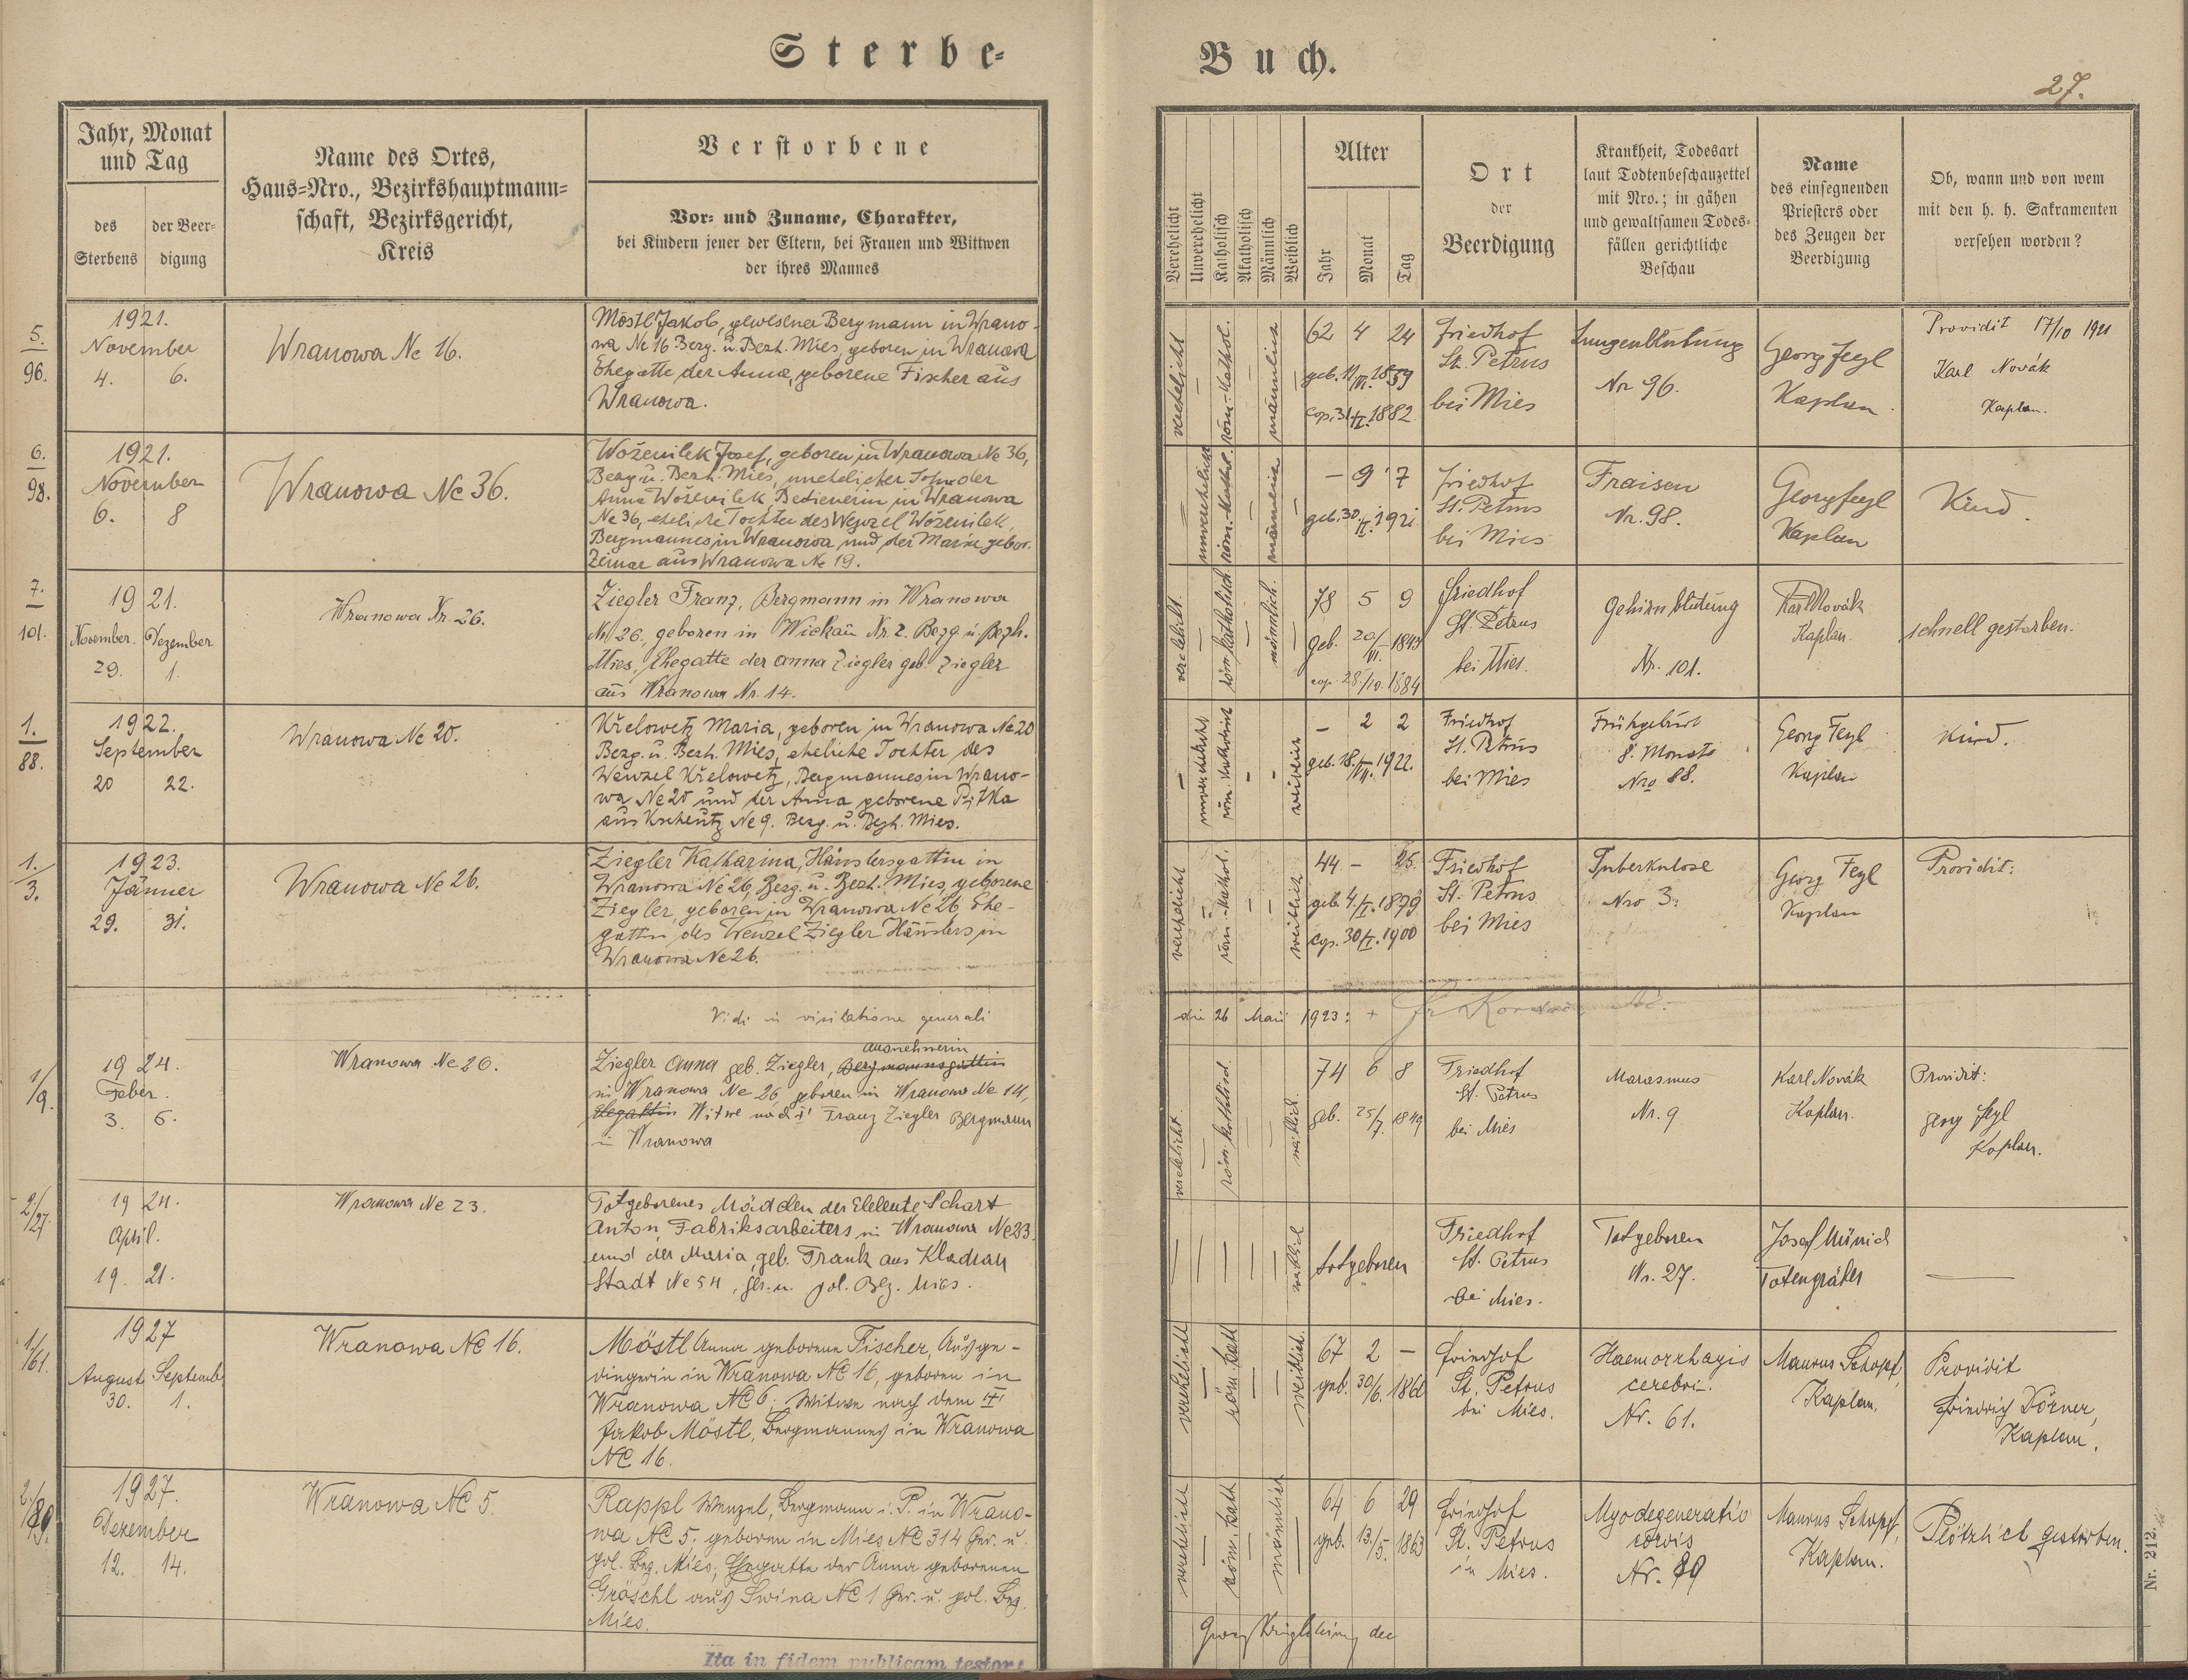 Sterbe-
Buch.
27.
Jahr, Monat
und Tag
des
Sterbens
der Beer-
digung
Name des Ortes,
Haus-Nro., Bezirkshauptmann-
schaft, Bezirksgericht,
Kreis
Verstorbene
Vor- und Zuname, Charakter,
bei Kindern jener der Eltern, bei Frauen und Wittwen
der ihres Mannes
Verehelicht
Unverehelicht
Katholisch
Akatholisch
Männlich
Weiblich
Alter
Jahr
Monat
Tag
Ort
der
Beerdigung
Krankheit, Todesart
laut Todtenbeschauzettel
mit Nro.; in gähen
und gewaltsamen Todes-
fällen gerichtliche
Beschau
Name
des einsegnenden
Priesters oder
des Zeugen der
Beerdigung
Ob, wann und von wem
mit den h. h. Sakramenten
versehen worden?
5.
96.
1921.
November
4. 6.
Wranowa Nc 16.
Möstl Jakob, gewesener Bergmann in Wrano-
wa Nc 16 Bezg. u. Bezh. Mies, geboren in Wranowa
Ehegatte der Anna, geborene Fischer aus
Wranowa.
verehelicht
röm.-kathol.
männlich
62 4 24
geb. 11/VI. 1859
cop. 31/I. 1882
Friedhof
St. Petrus
bei Mies
Lungenblutung
Nr 96.
Georg Fegl
Kaplan.
Providit 17/10 1921
Karl Novák
Kaplan.
6.
98.
1921.
November
6. 8
Wranowa Nc 36.
Woženilek Josef, geboren in Wranowa Nc 36,
Bezg u. Bezh. Mies, unehelicher Sohn der
Anna Woženilek Bedienerin in Wranowa
Nc 36, eheliche Tochter des Wenzel Woženilek,
Bergmannes in Wranowa und der Marie gebor.
Zeman aus Wranowa Nc 19.
unverehelicht
röm.-kathol.
männlich
— 9 7
geb. 30./I. 1921
Friedhof
St. Petrus
bei Mies
Fraisen
Nr. 98.
Georg Fegl
Kaplan
Kind.
7.
101.
1921.
November. Dezember
29. 1.
Wranowa Nr. 26.
Ziegler Franz, Bergmann in Wranowa
Nr 26, geboren in Wickau Nr. 2. Bezg. u. Bezh.
Mies, Ehegatte der Anna Ziegler geb. Ziegler
aus Wranowa Nr. 14.
verehelicht.
röm. katholisch.
männlich.
78 5 9
geb. 20/VI. 1843
cop. 28./10. 1884
Friedhof
St. Petrus
bei Mies.
Gehirnblutung
Nr. 101.
Karl Novák
Kaplan.
schnell gestorben.
1.
88.
1922.
September
20 22.
Wranowa Nc 20.
Křelowetz Maria, geboren in Wranowa Nc 20
Bezg. u. Bezh. Mies, eheliche Tochter des
Wenzel Křelowetz, Bergmannes in Wrano-
wa Nc 20 und der Anna geborene Pitka
aus Kscheutz Nc 9. Bezg. u. Bezh. Mies.
unverehelicht
röm. katholisch
weiblich
— 2 2
geb. 18./VII. 1922.
Friedhof
St. Petrus
bei Mies
Frühgeburt
8. Monats
Nro 88.
Georg Fegl
Kaplan
Kind.
1.
3.
1923.
Jänner
29. 31.
Wranowa Nc 26.
Ziegler Katharina, Häuslersgattin in
Wranowa Nc 26, Bezg. u. Bezh. Mies, geborene
Ziegler, geboren in Wranowa Nc 26 Ehe-
gattin des Wenzel Ziegler Häuslers in
Wranowa Nc 26.
verehelicht
röm.-kathol.
weiblich
44 — 25.
geb. 4./I. 1879
cop. 30/I. 1900
Friedhof
St. Petrus
bei Mies
Tuberkulose
Nro 3.
Georg Fegl
Kaplan
Providit:
Vidi in visitatione generali
die 26 Maii 1923: +
1/9.
1924.
Feber.
3. 6.
Wranowa Nc 26.
Ausnehmerin
Ziegler Anna geb. Ziegler, Bergmannsgattin
in Wranowa Nc 26 geboren in Wranowa Nc 14,
Ehegattin Witwe nach † Franz Ziegler Bergmann
in Wranowa
verehelicht.
röm. katholisch.
weiblich.
74 6 8
geb. 25/7. 1849
Friedhof
St. Petrus
bei Mies
Marasmus
Nr. 9
Karl Novák
Kaplan.
Providit:
Georg Fegl
Kaplan.
2/27.
1924.
April.
19. 21.
Wranowa Nc 23.
Totgeborenes Mädchen der Eheleute Schart
Anton, Fabriksarbeiters in Wranowa Nc 23
und der Maria, geb. Frank aus Kladrau
Stadt Nc 54, ger. u. pol. Bez. Mies.
weiblich
totgeboren
Friedhof
St. Petrus
bei Mies.
Totgeboren
Nr. 27.
Josef Münich
Totengräber
1/61.
1927
August Septemb.
30. 1.
Wranowa Nc 16.
Möstl Anna geborene Fischer, Ausge-
dingerin in Wranowa Nc 16, geboren in
Wranowa Nc 6; Witwe nach dem †
Jakob Möstl, Bergmannes in Wranowa
Nc 16.
verehelicht
röm. kath
weiblich.
67 2 —
geb. 30/6. 1860
Friedhof
St. Petrus
bei Mies.
Haemorrhagis
cerebri.
Nr. 61.
Maurus Schopf,
Kaplan.
Providit
Friedrich Dörner,
Kaplan.
2./89.
1927.
Dezember
12. 14.
Wranowa Nc 5.
Rappl Wenzel, Bergmann i. P. in Wrano-
wa Nc 5. geboren in Mies Nc 314 Ger. u.
pol. Bez. Mies; Ehegatte der Anna geborenen
Gröschl aus Swina Nc 1 Ger. u. pol. Bez.
Mies.
verehelicht
röm. kath
männlich
64 6 29
geb. 13/5. 1863
Friedhof
St. Petrus
in Mies.
Myodegeneratio
cordis
Nr. 89
Maurus Schopf,
Kaplan.
Plötzlich gestorben.
Ita in fidem publicam testor:
Nr. 212.